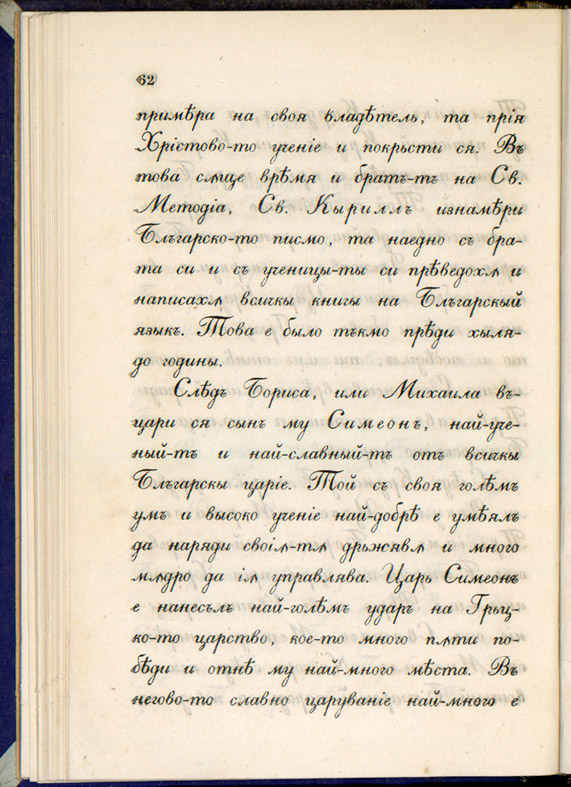 62
примѣра на своя владѣтель, та прія
Хрістово-то ученіе и покрьсти ся. Въ
това сѫще врѣмя и братъ-тъ на Св.
Методіа, Св. Кыриллъ изнамѣри
Бългaрско-то писмо, та наедно съ бра-
та си и съ ученицы-ты си прѣведохѫ и
написахѫ всичкы книгы на Българскый
языкъ. Това е было тъкмо прѣди хыля-
до годины.
Слѣдъ Бориса, или Михаила въ-
цари ся сынъ му Симеонъ, най-уче-
ный-тъ и най-славный-тъ отъ всичкы
Българскы царіе. Той съ своя голѣмъ
умъ и высоко ученіе най-добрѣ е умѣялъ
да нареди своіѫ-тѫ дрьжявѫ и много
мѫдро да іѫ управлява. Царь Симеонъ
е нанесълъ най-голѣмъ ударъ на Грьц-
ко-то царство, кое-то много пѫти по-
бѣди и отнѣ му най-много мѣста. Въ
негово-то славно царуваніе най-много е